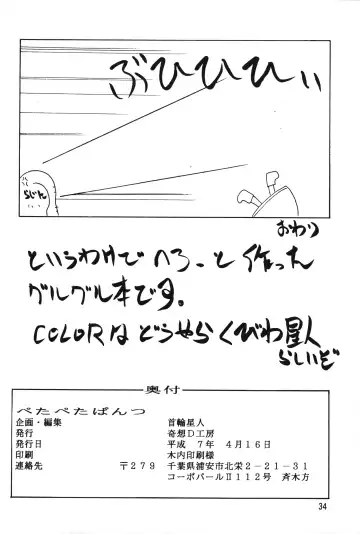 ぶひひひぃ
らじん
おわり
というわけで へろーと作った
グルグル本です。
COLORはどうやらくびわ星人
らしいぞ
奥付
ぺたぺたぱんつ
企画・編集 首輪星人
発行 奇想D工房
発行日 平成 7年 4月16日
印刷 木内印刷様
連絡先 〒279 千葉県浦安市北栄2-21-31
コーポパールⅡ112号 斉木方
34